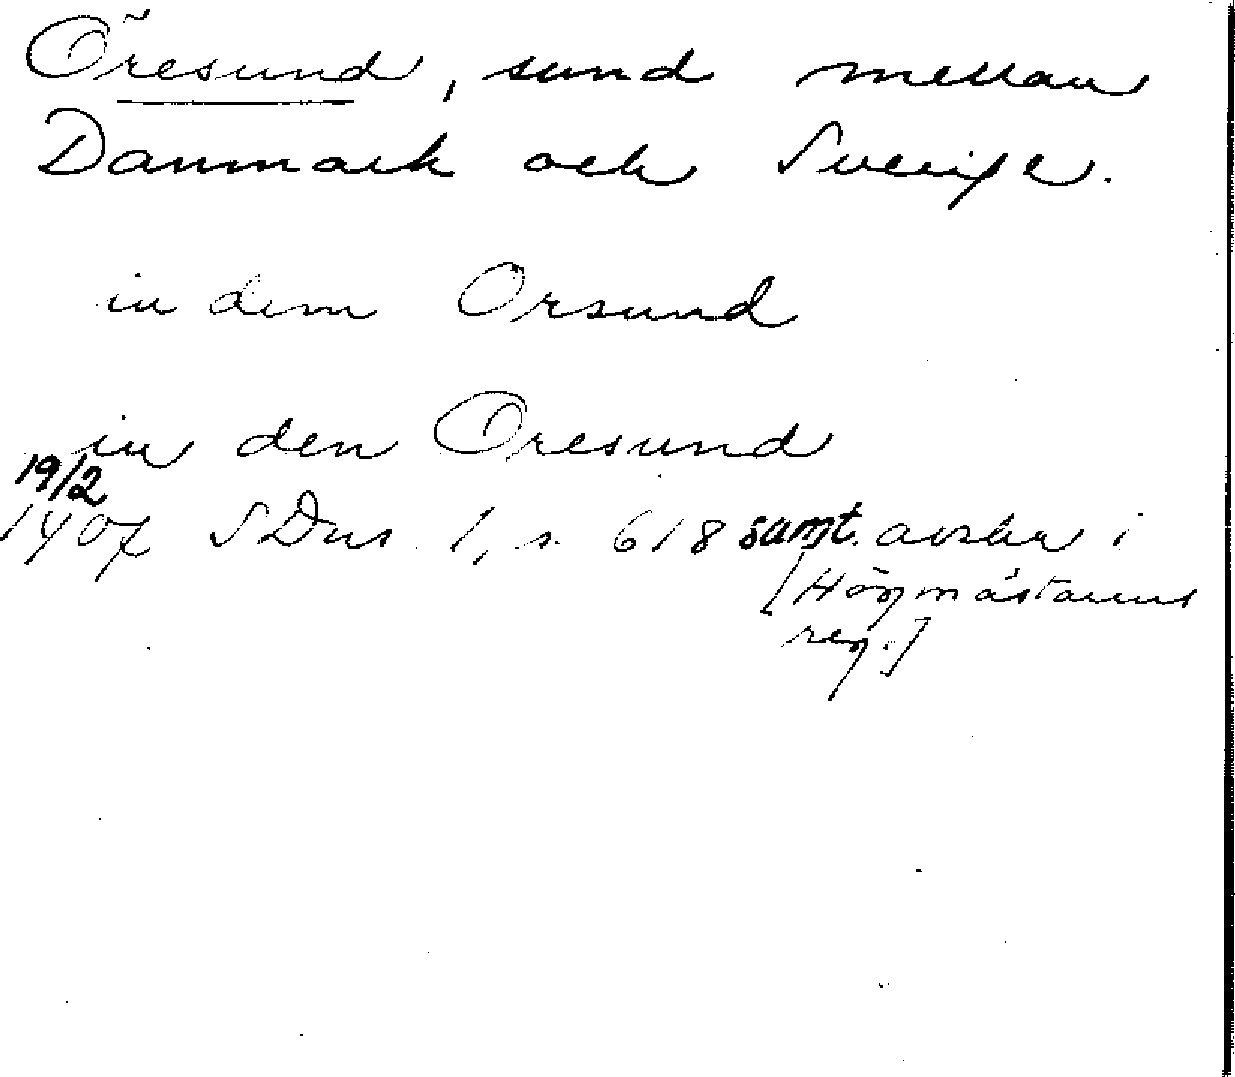 Öresund, sund mellan
Danmark och Sverige.
in dem Orsund
in den Oresund
19/2
1407 SDns 1, s. 618 samt. avskr i
[Högmästarens
reg.]